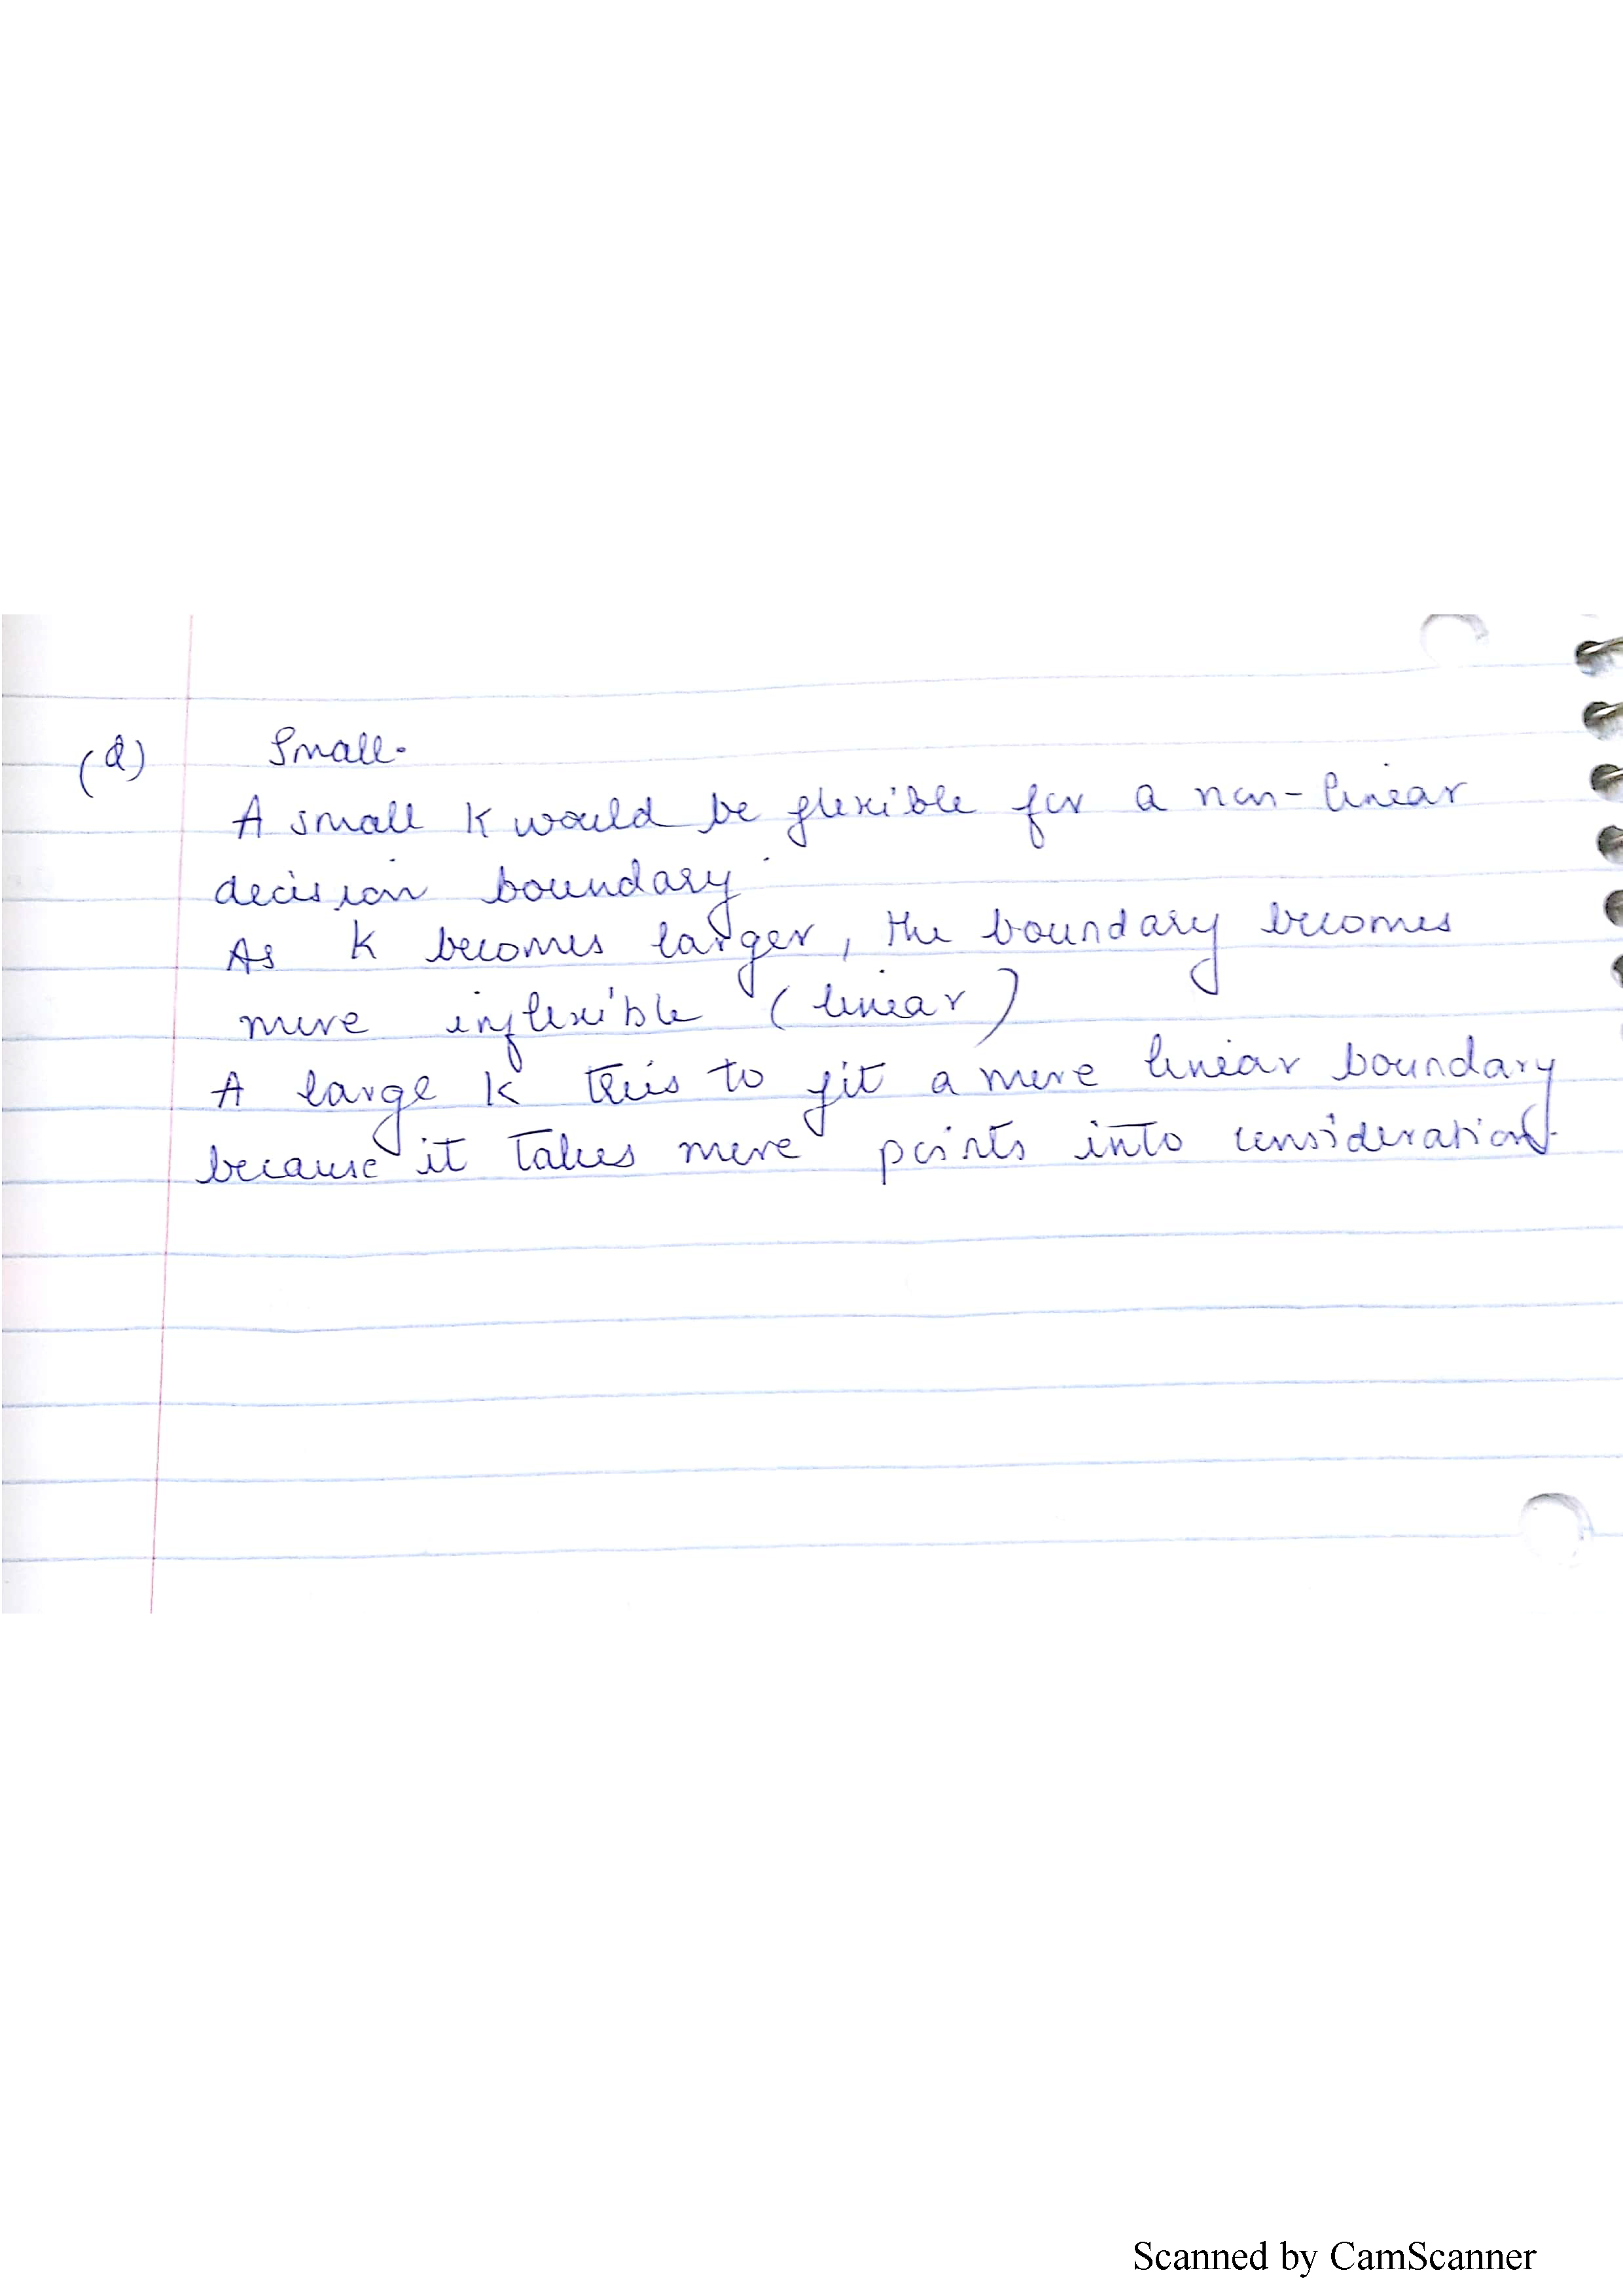 (d) Small.
A small K would be flexible for a non-linear
decision boundary.
As K becomes larger, the boundary becomes
more inflexible (linear)
A large K tries to fit a more linear boundary
because it takes more points into consideration.
Scanned by CamScanner